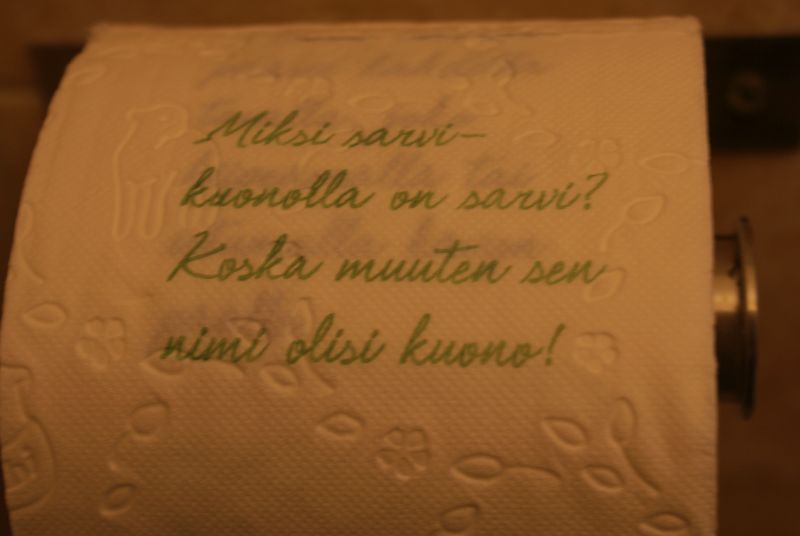 Miksi sarvi-
kuonolla on sarvi?
Koska muuten sen
nimi olisi kuono!